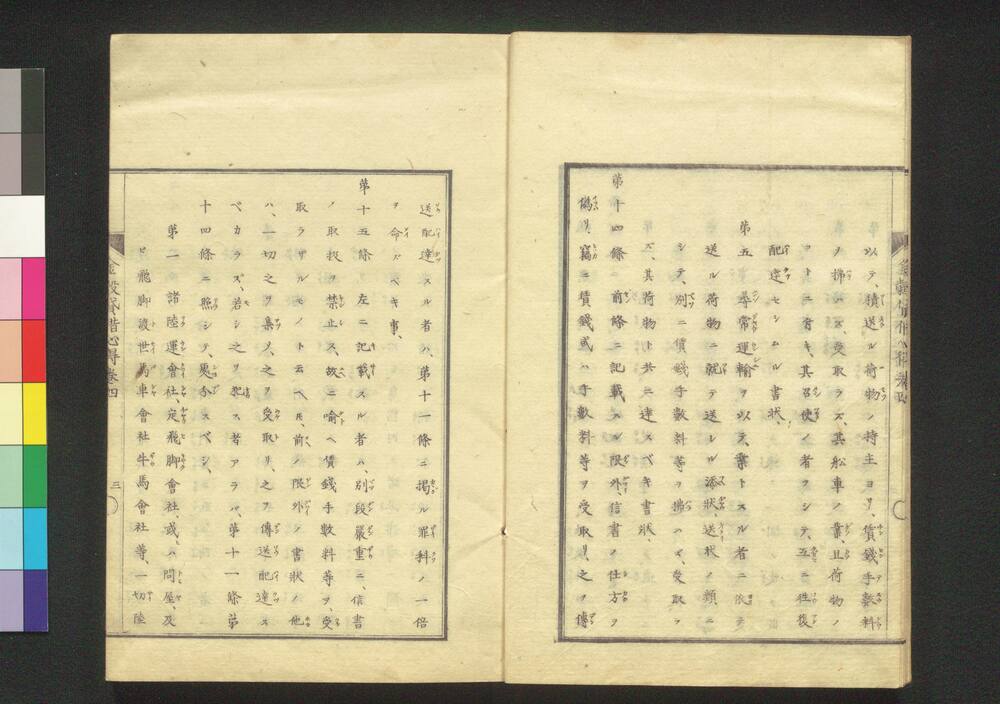 以テ、積送ル荷物ノ持主ヨリ、賃錢手數料
ヲ拂ハズ、受取ラズ、其舩車ノ書且荷物ノ
コトニ付キ、其召使ノ者ヲシテ、互ニ徃復
配達セシムル書狀、
第五 尋常運輸ヲ以テ、業トスル者ニ依テ
送ル荷物ニ就テ送レル添狀、送狀ノ類ニ
シテ、別ニ賃錢手數料等ヲ拂ハズ、受取ラ
ズ、其荷物ト共ニ達スベキ書狀、
第十四條 前條ニ記載スル限外信書ノ仕方ヲ
僞リ、竊ニ賃錢或ハ手數料等ヲ受取リ、之ヲ傳
送配達スル者ハ、第十一條ニ掲グル罪科ノ一倍
ヲ命ズベキ事、
第十五條 左ニ記載スル者ハ、別段嚴重ニ信書
ノ取扱ヲ禁止ス、故ニ喩ヘ賃錢手數料等ヲ、受
取ラザルモノト云ヘ𪜈、前ノ限外ノ書狀ノ他
ハ、一切之ヲ集メ、之ヲ受取リ、之ヲ傳送配達ス
ベカラズ、若シ之ヲ犯ス者アラバ、第十一條第
十四條ニ照シテ、處分スベシ、
第一 諸陸運會社、定飛脚會社、或ハ問屋、及
ビ飛脚渡世馬車會社牛馬會社等、一切陸
金穀貸借心得卷四
三